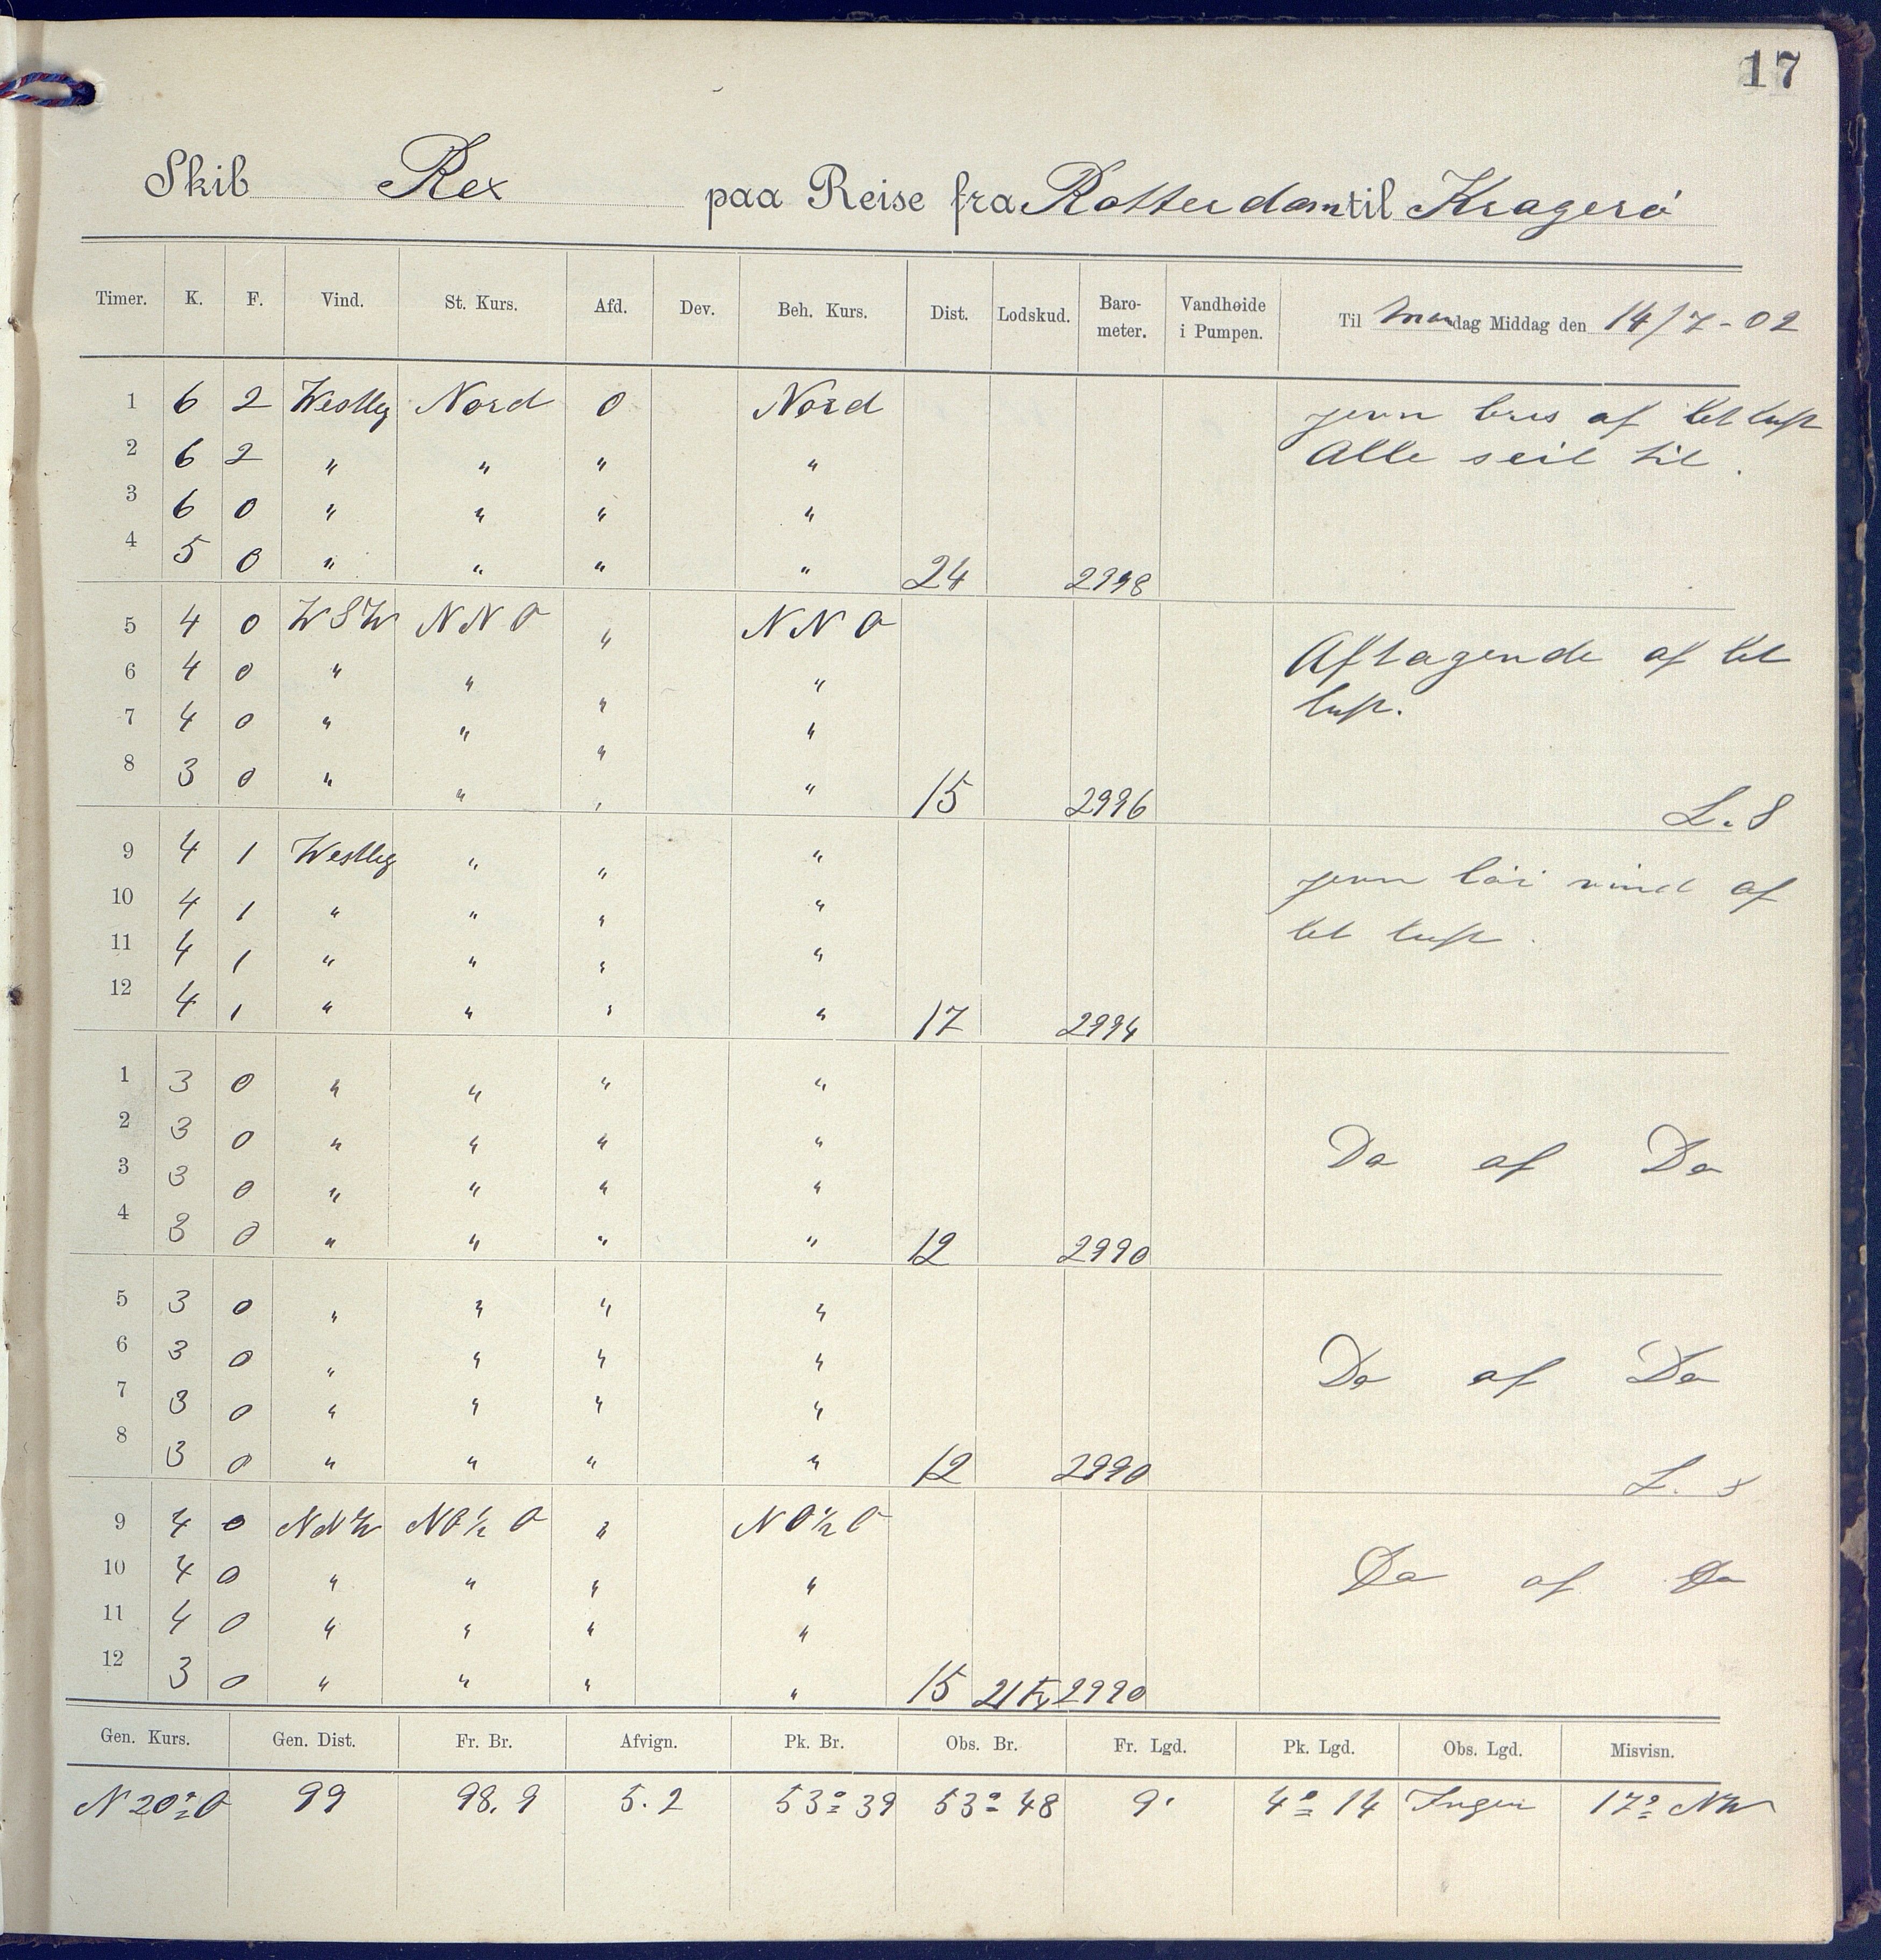 17
Skib Rex paa Reise fra Rotterdam til Kragerö
Timer. K. F. Vind. St. Kurs. Afd. Dev. Beh. Kurs. Dist. Lodskud. Baro-meter. Vandhøide i Pumpen. Til Mandag Middag den 14/7-02
1 6 2 Westlig Nord 0 Nord jevn bris af let luft
2 6 2 " " " " Alle seil til.
3 6 0 " " " "
4 5 0 " " " " 24 2998
5 4 0 WSW NNO " NNO
6 4 0 " " " " Aftagende af let
7 4 0 " " " " luft.
8 3 0 " " " " 15 2996 L.S
9 4 1 Westlig " " " jevn löi vind af
10 4 1 " " " " let luft.
11 4 1 " " " "
12 4 1 " " " " 17 2994
1 3 0 " " " "
2 3 0 " " " " Do af Do
3 3 0 " " " "
4 3 0 " " " " 12 2990
5 3 0 " " " "
6 3 0 " " " " Do af Do
7 3 0 " " " "
8 3 0 " " " " 12 2990 L.S
9 4 0 NNW NO½O " NO½O
10 4 0 " " " " Do af Do
11 4 0 " " " "
12 3 0 " " " " 15 21 2990
Gen. Kurs. Gen. Dist. Fr. Br. Afvign. Pk. Br. Obs. Br. Fr. Lgd. Pk. Lgd. Obs. Lgd. Misvisn.
N 20° O 99 98.9 5.2 53° 39 53° 48 9' 4° 14 Ingen 17° NW